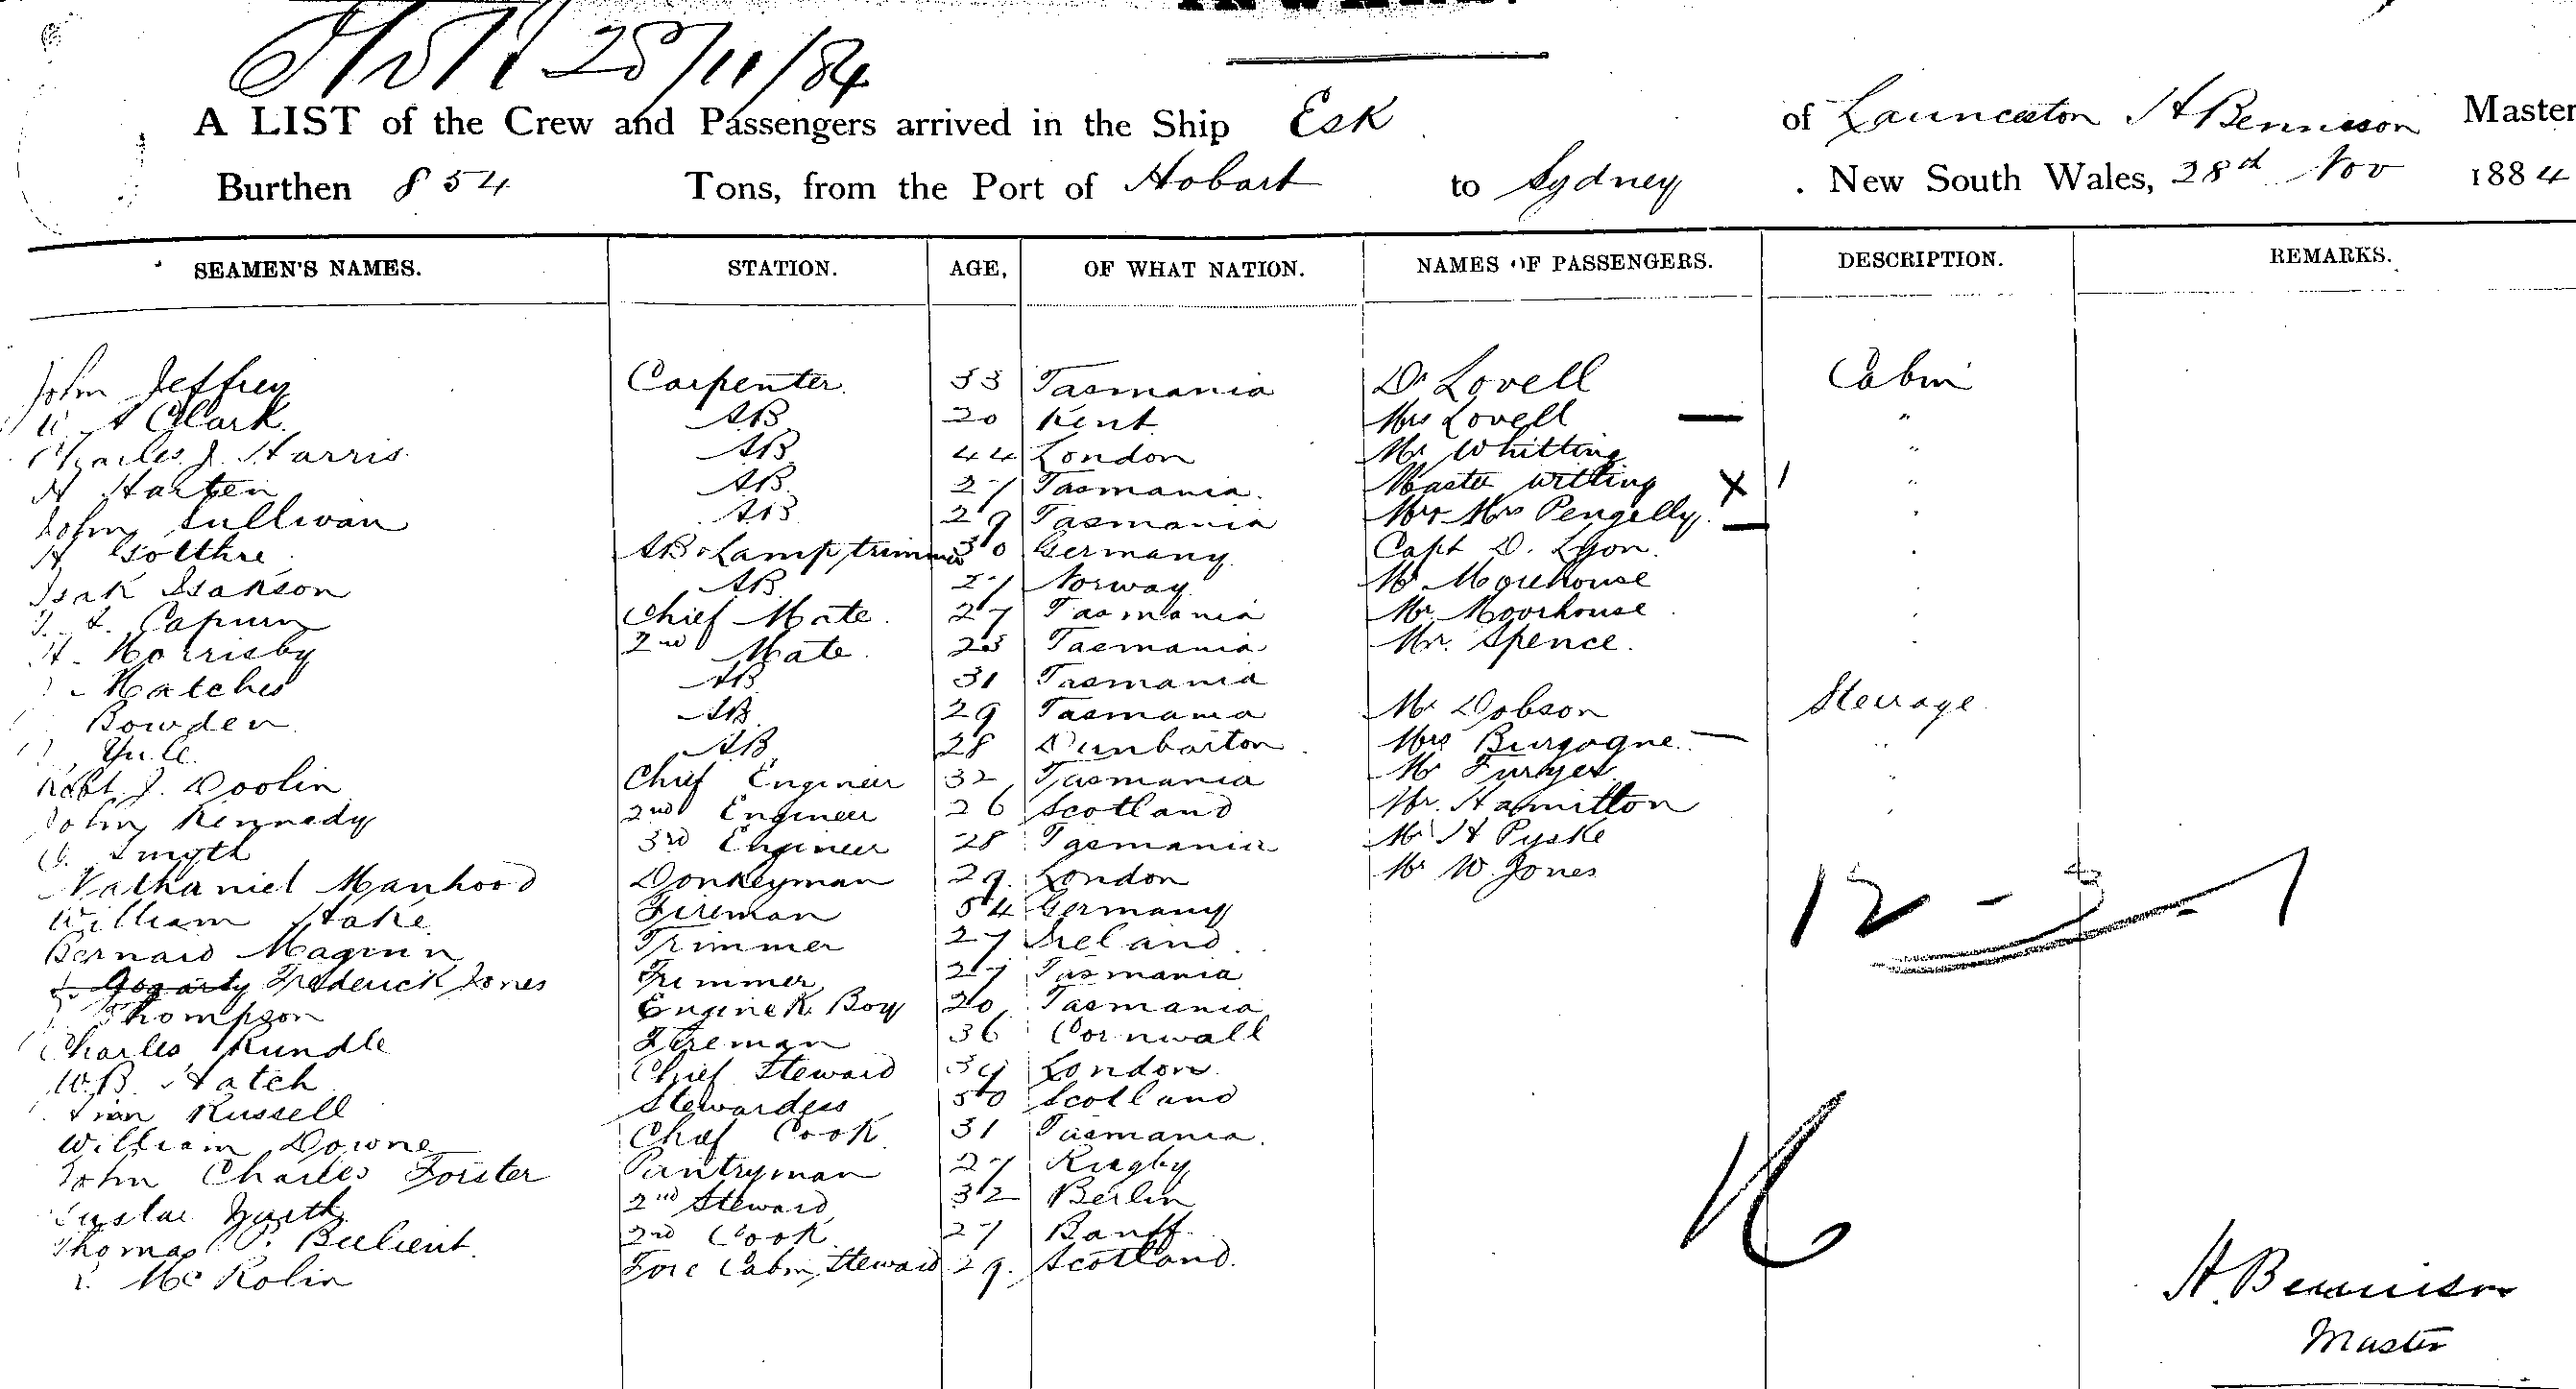 28/11/84
A LIST of the Crew and Passengers arrived in the Ship Esk of Launceston H Bennison Master
Burthen 854 Tons, from the Port of Hobart to Sydney . New South Wales, 28d Nov 1884
SEAMEN'S NAMES. STATION. AGE, OF WHAT NATION. NAMES OF PASSENGERS. DESCRIPTION. REMARKS.
John Jeffrey Carpenter 33 Tasmania Dr Lovell Cabin
A Clark. AB 20 Kent Mrs Lovell — "
Charles J. Harris. AB 44 London Mr Whitting "
H Harten AB. 27 Tasmania. Master Witting X 1 "
John Sullivan AB 29 Tasmania Mr & Mrs Pengelly. — "
H AB & Lamptrimmer 30 Germany Capt D. Lyon. "
Isak Isakson AB 27 Norway Mr Morehouse
Capurn Chief Mate. 27 Tasmania Mr. Moorhouse "
H. Morrisby 2nd Mate. 23 Tasmania Mr. Spence. "
Hatches AB 31 Tasmania
Bowden AB 29 Tasmania Mr Dobson Steerage
Yule AB 28 Dunbarton Mrs Burgogne. — "
Robt. J. Doolin Chief Engineer 32 Tasmania Mr "
John Kennedy 2nd Engineer 26 Scotland Mr. Hamilton "
Smyth 3rd Engineer 28 Tasmania Mr H Pyske
Nathaniel Manhood Donkeyman 29. London Mr W. Jones
12 - 3 - 1
William Stake Fireman 54 Germany
Bernard Maginn Trimmer 27 Ireland
Gogarty Frederick Jones Trimmer 27 Tasmania
Thompson Engine R. Boy 20 Tasmania
Charles Rundle Fireman 36 Cornwall
W.B. Hatch Chief Steward 39 London
Russell Stewardess 50 Scotland
William Downe Chief Cook 31 Tasmania.
John Charles Forster Pantryman 27 Rugby
Gustav 2nd Steward 32 Berlin
Thomas P. Bulient. 2nd Cook 27 Banff.
Mc Rolin Fore Cabin Steward 29. Scotland.
H. Bennison
Master